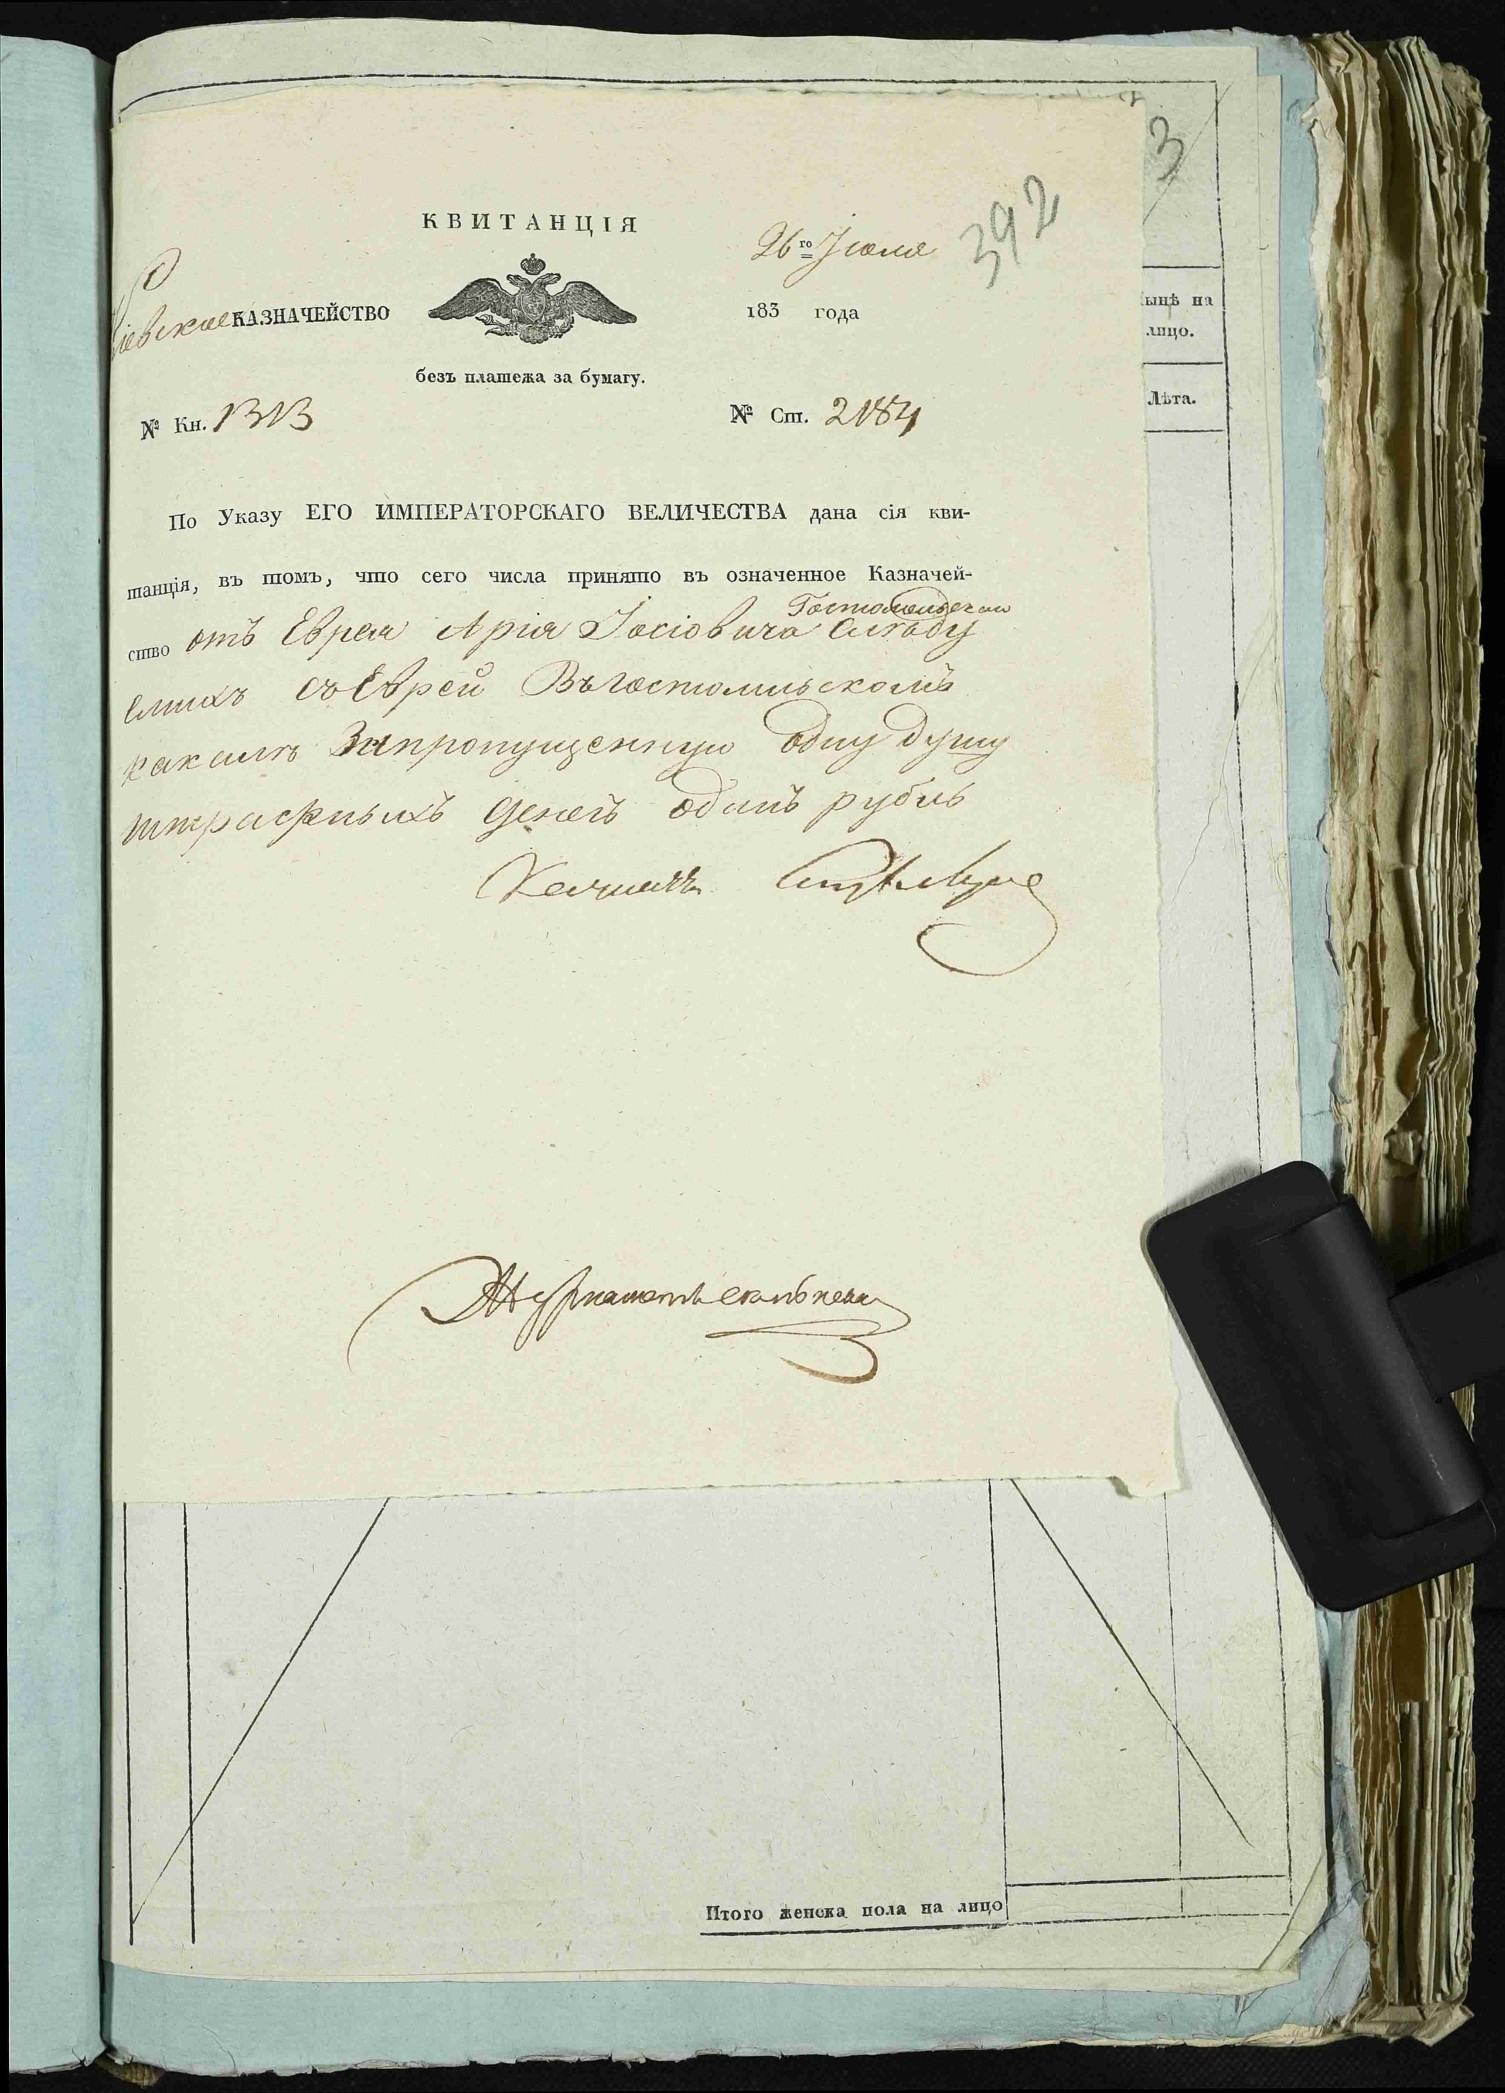 3
392
КВИТАНЦІЯ
26го Іюля
КАЗНАЧЕЙСТВО
183 года
безъ платежа за бумагу.
№ Кн. 1313
№ Ст. 2184
По Указу ЕГО ИМПЕРАТОРСКАГО ВЕЛИЧЕСТВА дана сія кви-
танція, въ томъ, что сего числа принято въ означенное Казначей-
ство отъ Еврея Арія Іосіовича
Еврей Въ Гостомльскомъ
кагалъ За пропущенную одну душу
штрафныхъ денегъ одинъ рубль
ынѣ на
лицо.
Лѣта.
Итого женска пола на лицо